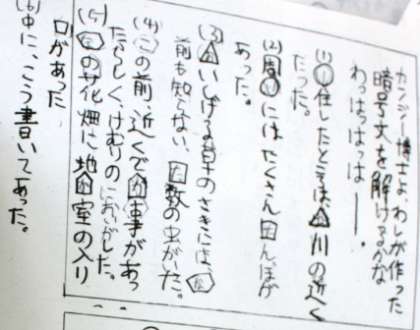 カンジー博士よ、わしが作った
暗号文を解けるかな
わっはっはっはー
(1) 住したところは、川の近く
だった。
(2) 周りにはたくさん田んぼが
あった。
(3) いしげる草のさきには、
前も知らない、数の虫がいた。
(4) この前、近くで事があっ
たらしく、けむりのにおいがした。
(5) の花畑に地室の入り
口があった
(6) 中に、こう書いてあった。